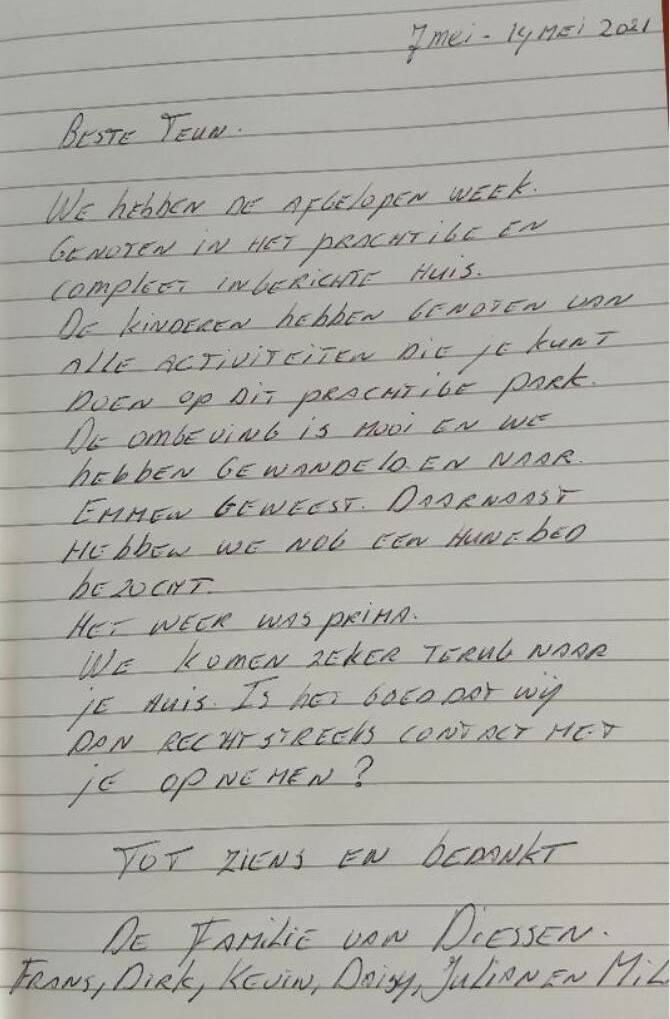 7 mei - 14 MEI 2021
BESTE TEUN.
WE hEbbEN DE AFGELOPEN WEEK.
GENOTEN IN HET PRACHTIGE EN
COMPLEET INGERICHTE HUIS.
DE KINDEREN hEbbEN GENOTEN VAN
ALLE ACTIVITEITEN DIE jE KUNT
DOEN OP DIT PRACHTIGE PARK.
DE OMGEVING IS MOOI EN WE
hEbbEN GEWANDELD EN NAAR
EMMEN GEWEEST. DAARNAAST
HEbbEN WE NOG EEN HUNEbED
bEZOCHT.
HET WEER WAS PRIMA.
WE KOMEN ZEKER TERUG NAAR
jE HUIS. IS hET GOED DAT Wij
DAN RECHTSTREEKS CONTACT MET
jE OPNEMEN?
TOT ZIENS EN bEDANKT
DE FAMILIE VAN DIESSEN.
FRANS, DIRK, KEVIN, DAISY, JULIAN EN MIL